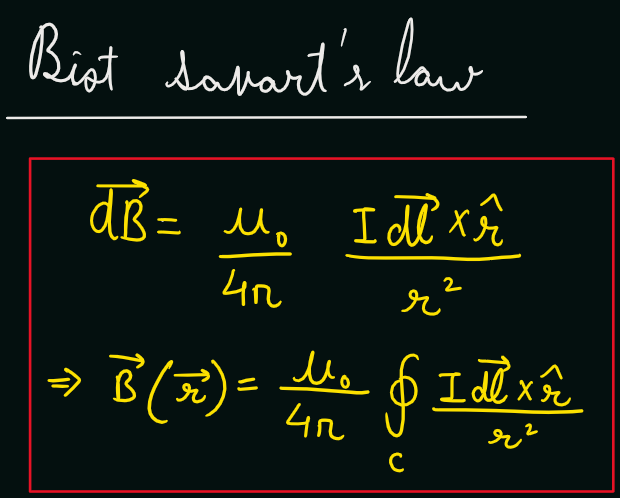 Biot savart's law
$\vec{dB} = \frac{\mu_0}{4\pi} \frac{I \vec{dl} \times \hat{r}}{r^2}$
$\Rightarrow \vec{B}(\vec{r}) = \frac{\mu_0}{4\pi} \oint_C \frac{I \vec{dl} \times \hat{r}}{r^2}$